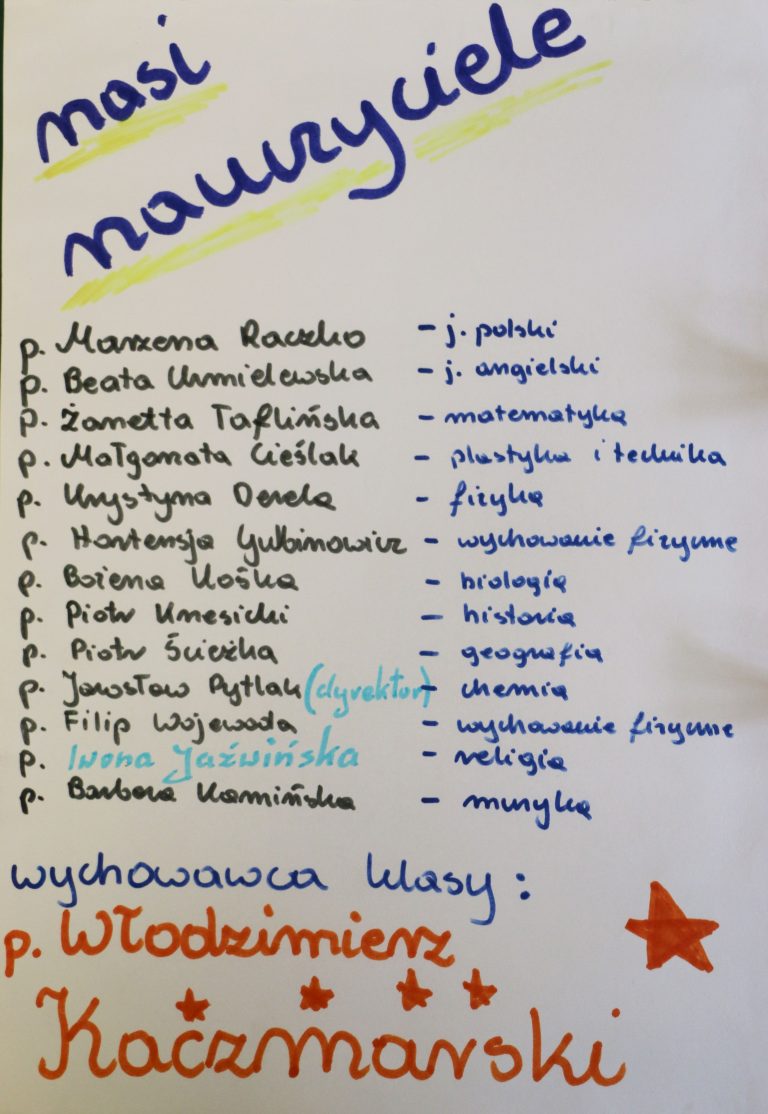 nasi
nauczyciele
p. Marzena Raczko - j. polski
p. Beata Chmielewska - j. angielski
p. Żanetta Taflińska - matematyka
p. Małgorzata Cieślak - plastyka i technika
p. Krystyna Dereka - fizyka
p. Hortensja Gulbinowicz - wychowanie fizyczne
p. Bożena Kośka - biologia
p. Piotr Knesicki - historia
p. Piotr Ścieżka - geografia
p. Jarosław Pytlak (dyrektor) - chemia
p. Filip Wojewoda - wychowanie fizyczne
p. Iwona Jaźwińska - religia
p. Barbara Kamińska - muzyka
wychowawca klasy:
p. Włodzimierz
Kaczmarski